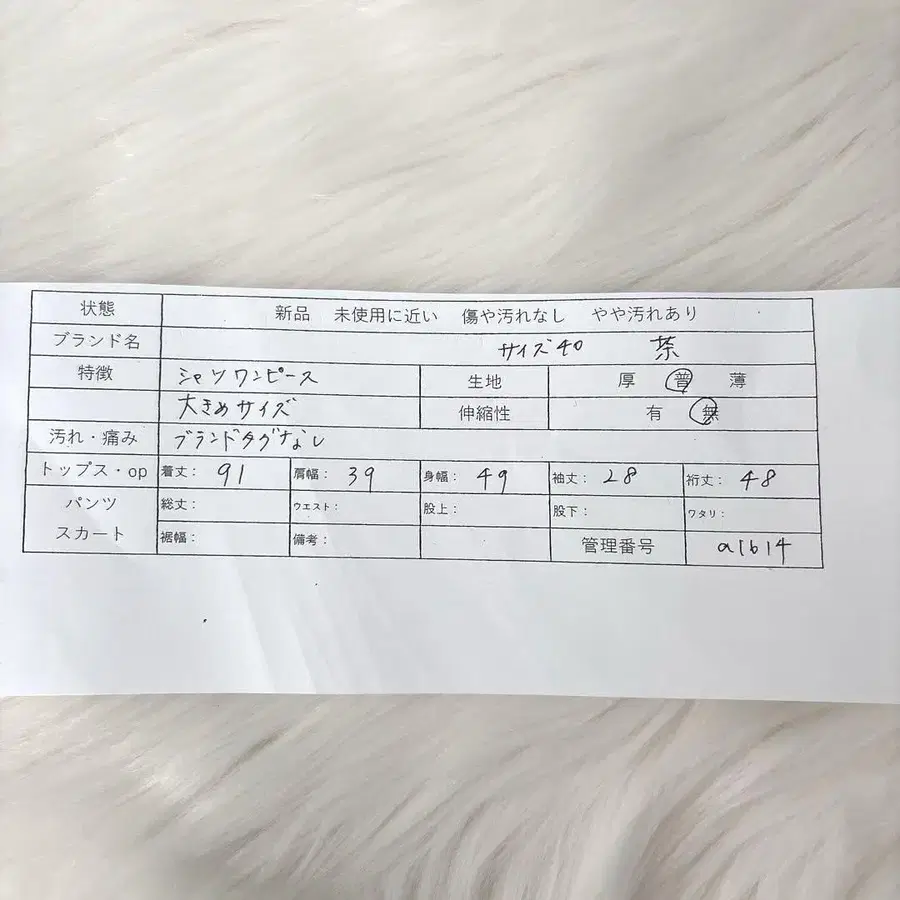 状態 新品 未使用に近い 傷や汚れなし やや汚れあり
ブランド名 サイズ40 茶
特徴 シャツワンピース 生地 厚 普 薄
大きめサイズ 伸縮性 有 無
汚れ・痛み ブランドタグなし
トップス・op 着丈: 91 肩幅: 39 身幅: 49 袖丈: 28 裄丈: 48
パンツ 総丈: ウエスト: 股上: 股下: ワタリ:
スカート 裾幅: 備考: 管理番号 a1614